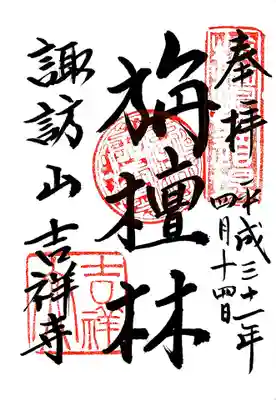 奉拝
平成三十一年
四月十四日
栴檀林
諏訪山吉祥寺
吉祥